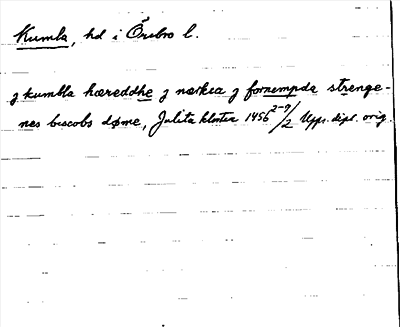 Kumla, hd i Örebro l.
ȝ kumbla hæreddhe ȝ nærkia ȝ fornempda strenge-
nes biscobs døme, Julita kloster 1456 2-9/2 Upps. dipl. orig.